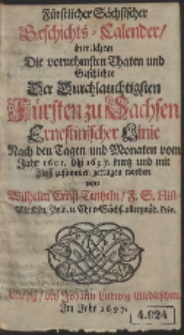 Fürstlicher Sächsischer
Geschichts-Calender/
Die vornehmsten Thaten und
Geschichte
Der Durchlauchtigsten
Fürsten zu Sachsen
Ernestinischer Linie
Nach den Tagen und Monaten vom
Jahr 1601. biß 1697. kurtz und mit
Fleiß zusammen getragen worden
von
Wilhelm Ernst Tentzeln/ F. S. Hist.
Leipzig/ bey Johann Ludwig Gleditschen.
Im Jahr 1697.
4.924